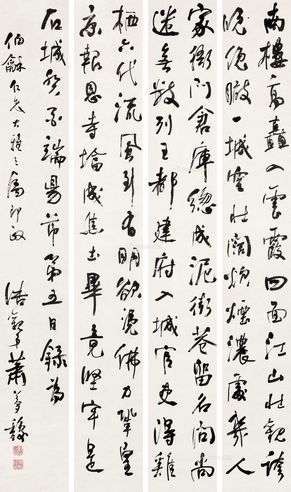 南樓高矗入雲霞四面江山壯觀誇
瞰一城空壯闊煙濃處幾人
家衙門倉庫總成泥街巷留名問尚
迷無數列王都建府入城官吏得難
栖六代流風到有明欲憑佛力鞏皇
京報恩寺塔成焦土畢竟堅牢是
石城癸丑端陽節第五日錄為
伯龢仁兄大雅之屬即正 蕭